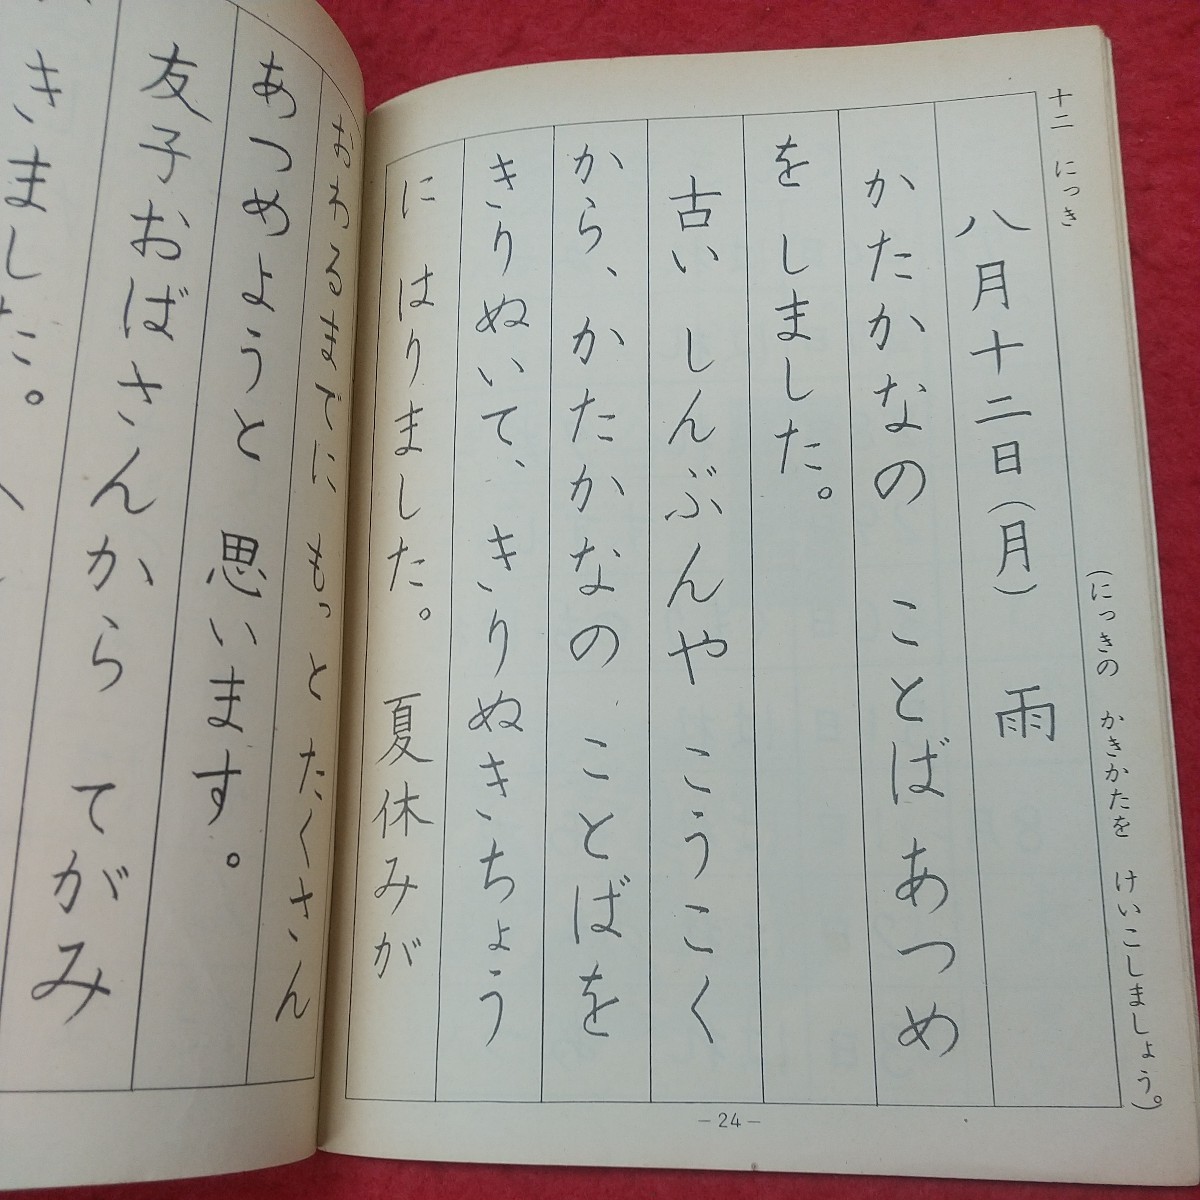 十二 にっき
(にっきの かきかたを けいこしましょう。)
八月十二日(月) 雨
かたかなの ことばあつめ
を しました。
古い しんぶんや こうこく
から、かたかなの ことばを
きりぬいて、きりぬきちょう
に はりました。 夏休みが
－24－
おわるまでに もっと たくさん
あつめようと 思います。
友子おばさんから てがみ
きました。